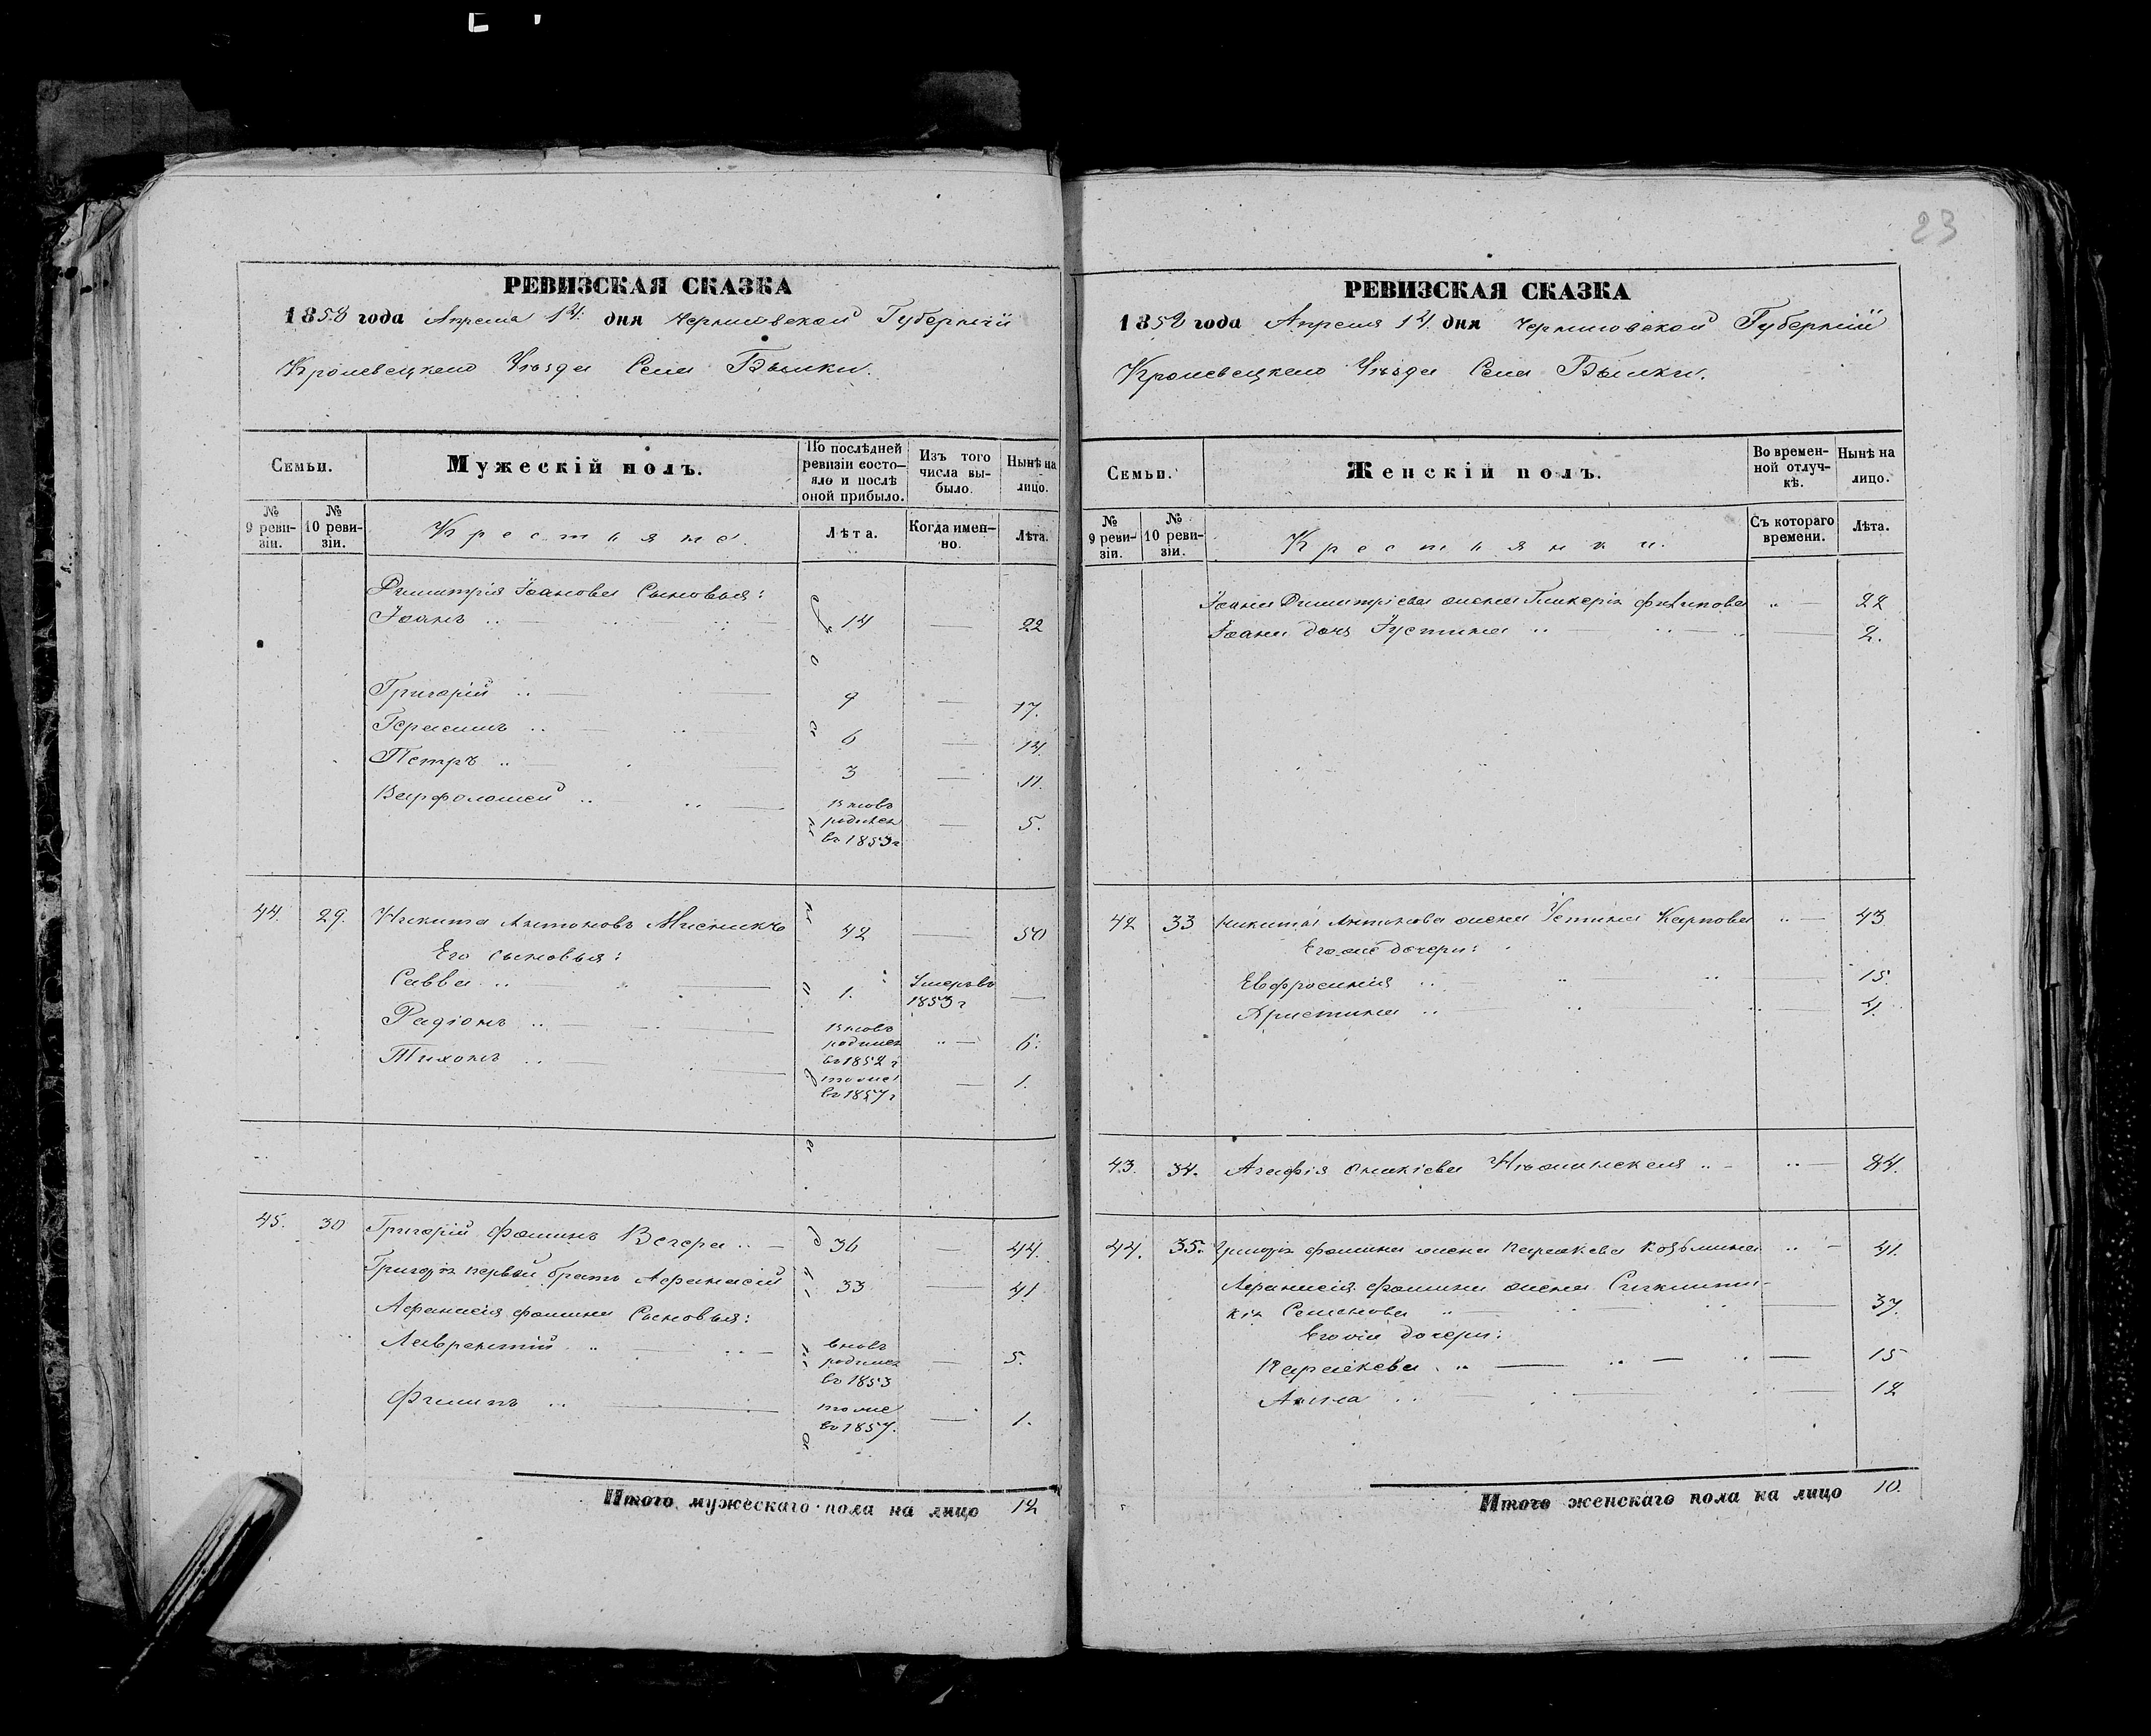 23
РЕВИЗСКАЯ СКАЗКА
1858 года Апреля 14 дня Черниговской Губерніи
Кролевецкаго Уѣзда Села Быстрики.
Семьи.
Мужескій полъ.
По послѣдней ревизіи состояло и послѣ оной прибыло.
Изъ того числа выбыло.
Нынѣ на лицо.
№ 9 ревизіи.
№ 10 ревизіи.
Крестьяне.
Лѣта.
Когда именно.
Лѣта.
Димитрія Іоанова Сыновья:
Іоанъ 14 — 22
Григорій 9 — 17.
Герасимъ 6 — 14.
Петръ 3 — 11.
Варфоломей вновь родился въ 1853 г — 5.
44. 29. Никита Антоновъ 42 — 50
Его сыновья:
Савва 1. Умеръ въ 1853 г —
Радіонъ вновь родился въ 1852 г — 6.
Тихонъ тоже въ 1857 г — 1.
45. 30 Григорій Фоминъ Вечера 36 — 44.
Григорія первой братъ Афанасій 33 — 41
Афанасія Фомина Сыновья:
Лаврентій вновь родился въ 1853 — 5.
Филипъ тоже въ 1857. — 1.
Итого мужескаго пола на лицо 12
РЕВИЗСКАЯ СКАЗКА
1858 года Апреля 14 дня Черниговской Губерніи
Кролевецкаго Уѣзда Села
Семьи.
Женскій полъ.
Во временной отлучкѣ.
Нынѣ на лицо.
№ 9 ревизіи.
№ 10 ревизіи.
Крестьянки.
Съ котораго времени.
Лѣта.
Іоана Димитріева жена Гликерія Филипова — 22
Іоана дочь Іустина — 2.
42 33 Никиты Антонова жена Устина Карпова — 43
Егоже дочери:
Евфросинія — 15
Христина — 4.
43. 34. Агафія — 84.
44. 35. Григорія Фомина жена Параскева Козьмина — 41.
Афанасія Фомина жена
Семенова — 37.
Егоже дочери:
Параскева — 15
Анна — 12
Итого женскаго пола на лицо 10.